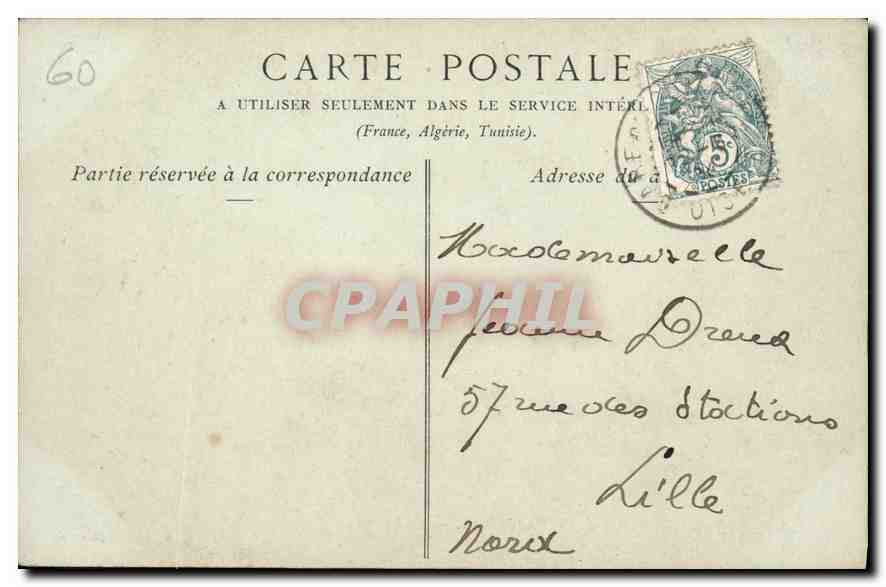 60
CARTE POSTALE
A UTILISER SEULEMENT DANS LE SERVICE INTÉRI
(France, Algérie, Tunisie).
Partie réservée à la correspondance
Adresse du
5c
POSTES
CPAPHIL
Mademoiselle
Jeanne
57 rue des Stations
Lille
Nord